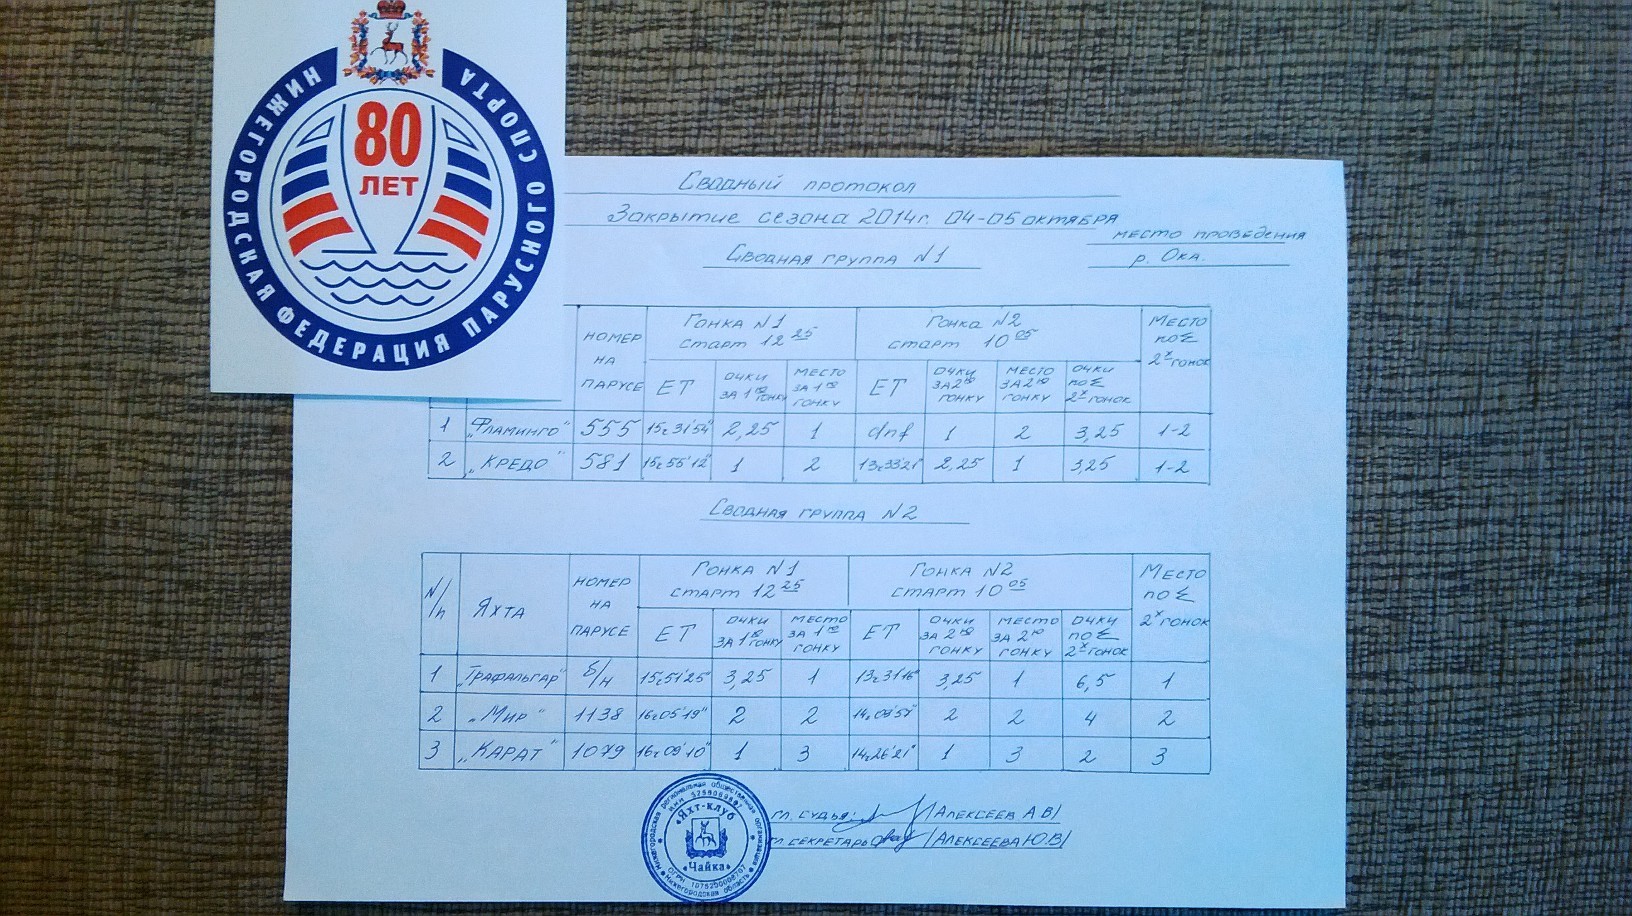 НИЖЕГОРОДСКАЯ ФЕДЕРАЦИЯ ПАРУСНОГО СПОРТА
80
ЛЕТ
Сводный протокол
Закрытие сезона 2014г. 04-05 октября
место проведения
р. Ока.
Сводная группа N1
НОМЕР НА ПАРУСЕ
Гонка N1 старт 12 25
Гонка N2 старт 10 05
Место по Σ 2х гонок
ЕТ
ОЧКИ ЗА 1ую ГОНКУ
МЕСТО ЗА 1ую ГОНКУ
ЕТ
ОЧКИ ЗА 2ую ГОНКУ
МЕСТО ЗА 2ую ГОНКУ
ОЧКИ ПО Σ 2х ГОНОК
1 „Фламинго" 555 15ч31'54" 2,25 1 dnf 1 2 3,25 1-2
2 „КРЕДО" 581 15ч55'12" 1 2 13ч33'21" 2,25 1 3,25 1-2
Сводная группа N2
N/п
Яхта
НОМЕР НА ПАРУСЕ
Гонка N1 старт 12 25
Гонка N2 старт 10 05
Место по Σ 2х гонок
ЕТ
ОЧКИ ЗА 1ую ГОНКУ
МЕСТО ЗА 1ую ГОНКУ
ЕТ
ОЧКИ ЗА 2ую ГОНКУ
МЕСТО ЗА 2ую ГОНКУ
ОЧКИ ПО Σ 2х ГОНОК
1 „Трафальгар" б/н 15ч51'25" 3,25 1 13ч31'16" 3,25 1 6,5 1
2 „Мир" 1138 16ч05'19" 2 2 2 2 4 2
3 „КАРАТ" 1079 16ч09'10" 1 3 14ч26'21" 1 3 2 3
гл. судья: /Алексеев А.В/
гл. секретарь /Алексеева Ю.В/
Нижегородская региональная общественная организация
Нижегородская область
«Яхт-клуб
Чайка»